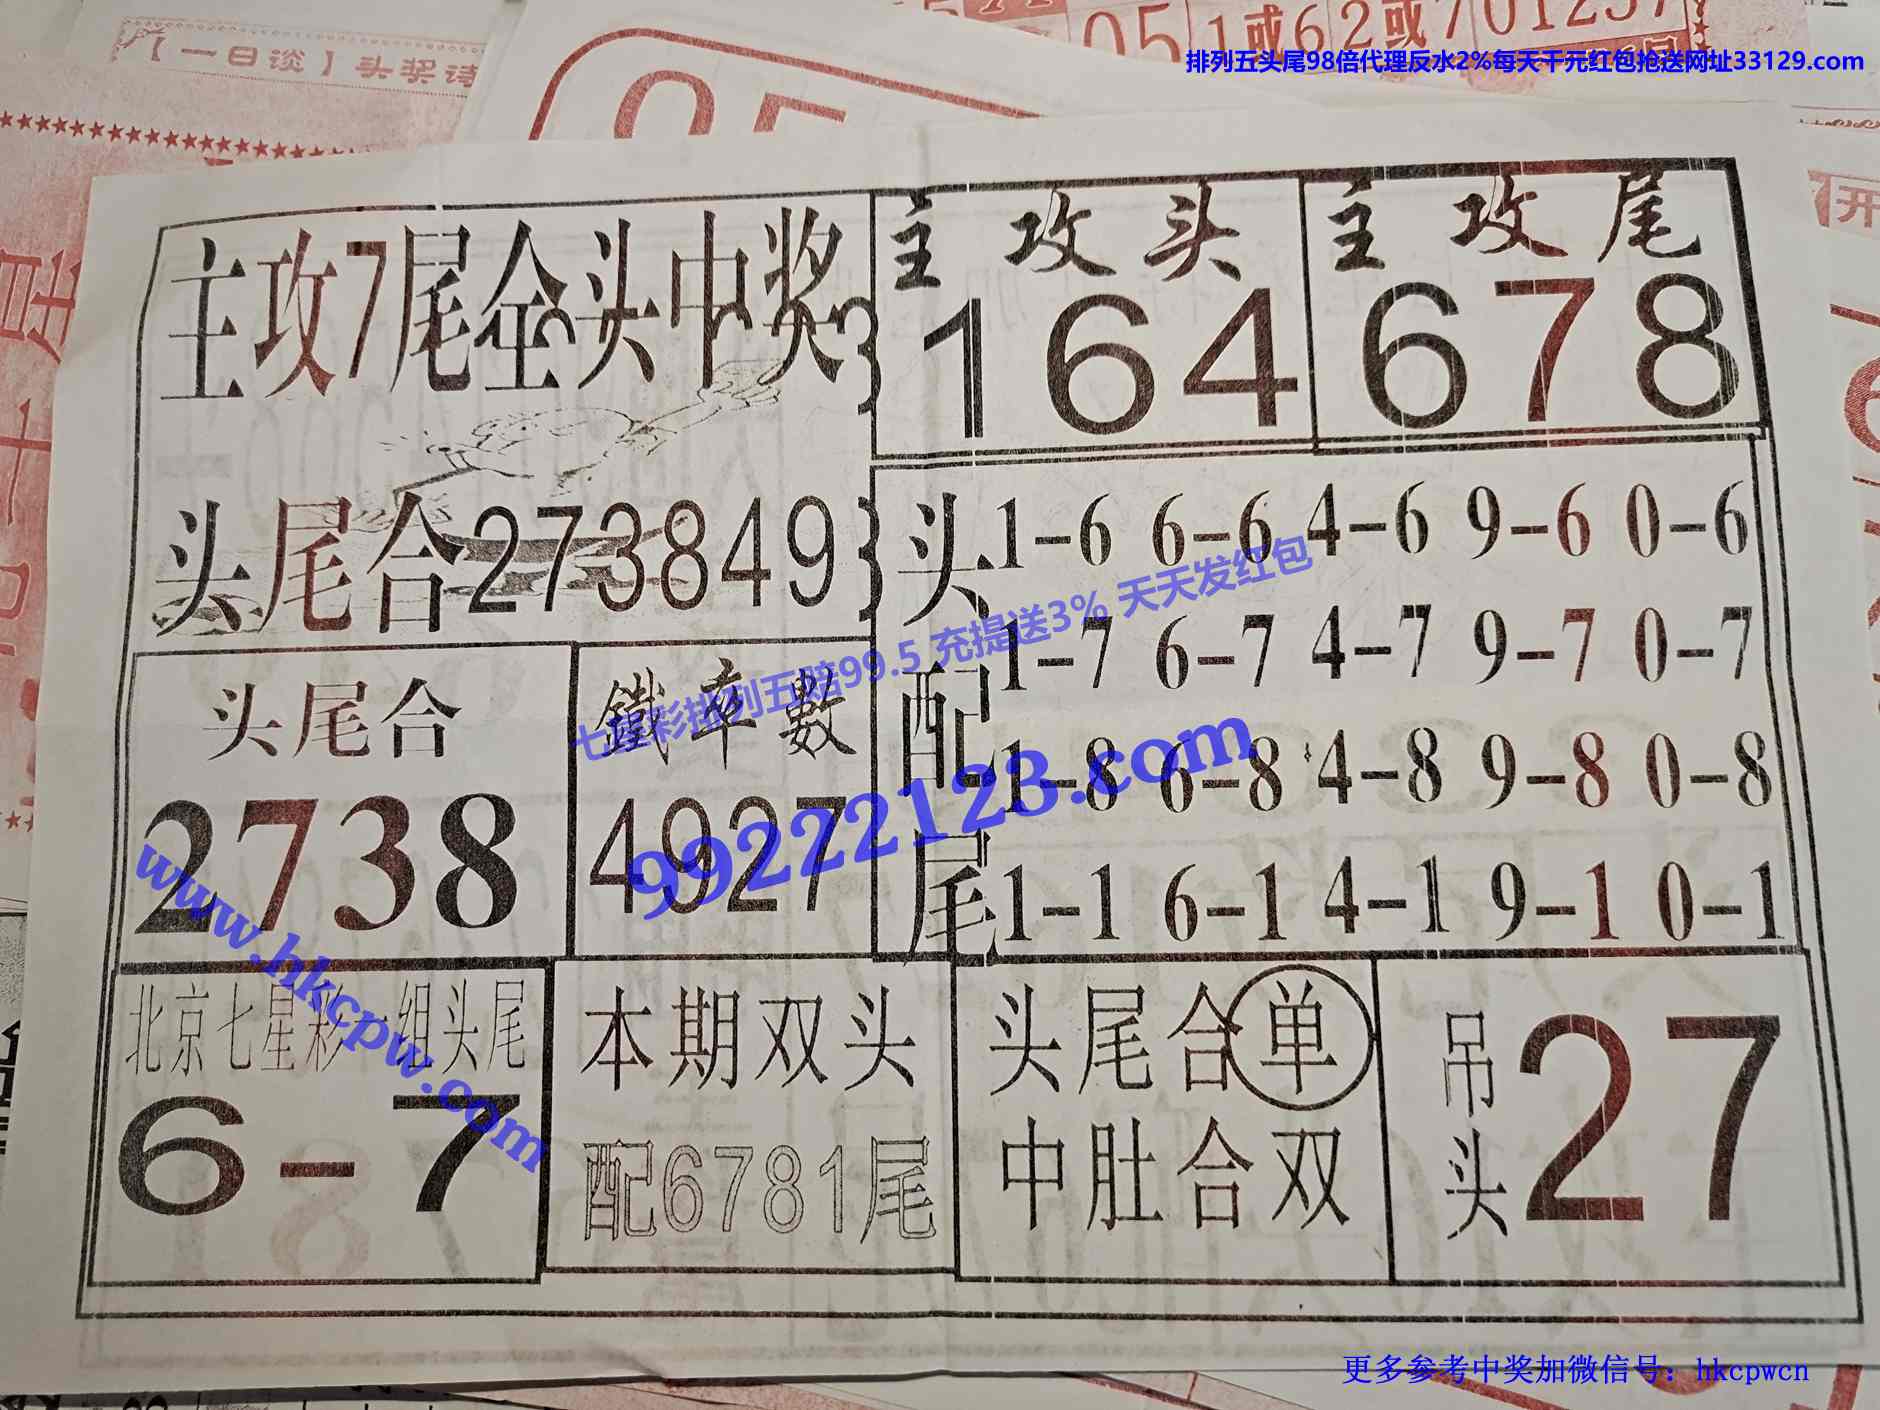 【一日谈】头奖诗
051或62或701237
排列五头尾98倍代理反水2%每天千元红包抢送网址33129.com
主攻7尾全头中奖
主攻头
164
主攻尾
678
头尾合273849
头配尾
1-6 6-6 4-6 9-6 0-6
1-7 6-7 4-7 9-7 0-7
1-8 6-8 4-8 9-8 0-8
1-1 6-1 4-1 9-1 0-1
七星彩排列五赔99.5 充提送3% 天天发红包
99222123.com
头尾合
2738
鐵率數
4927
www.hkcpw.com
北京七星彩一组头尾
6-7
本期双头
配6781尾
头尾合单
中肚合双
吊头
27
更多参考中奖加微信号：hkcpwcn